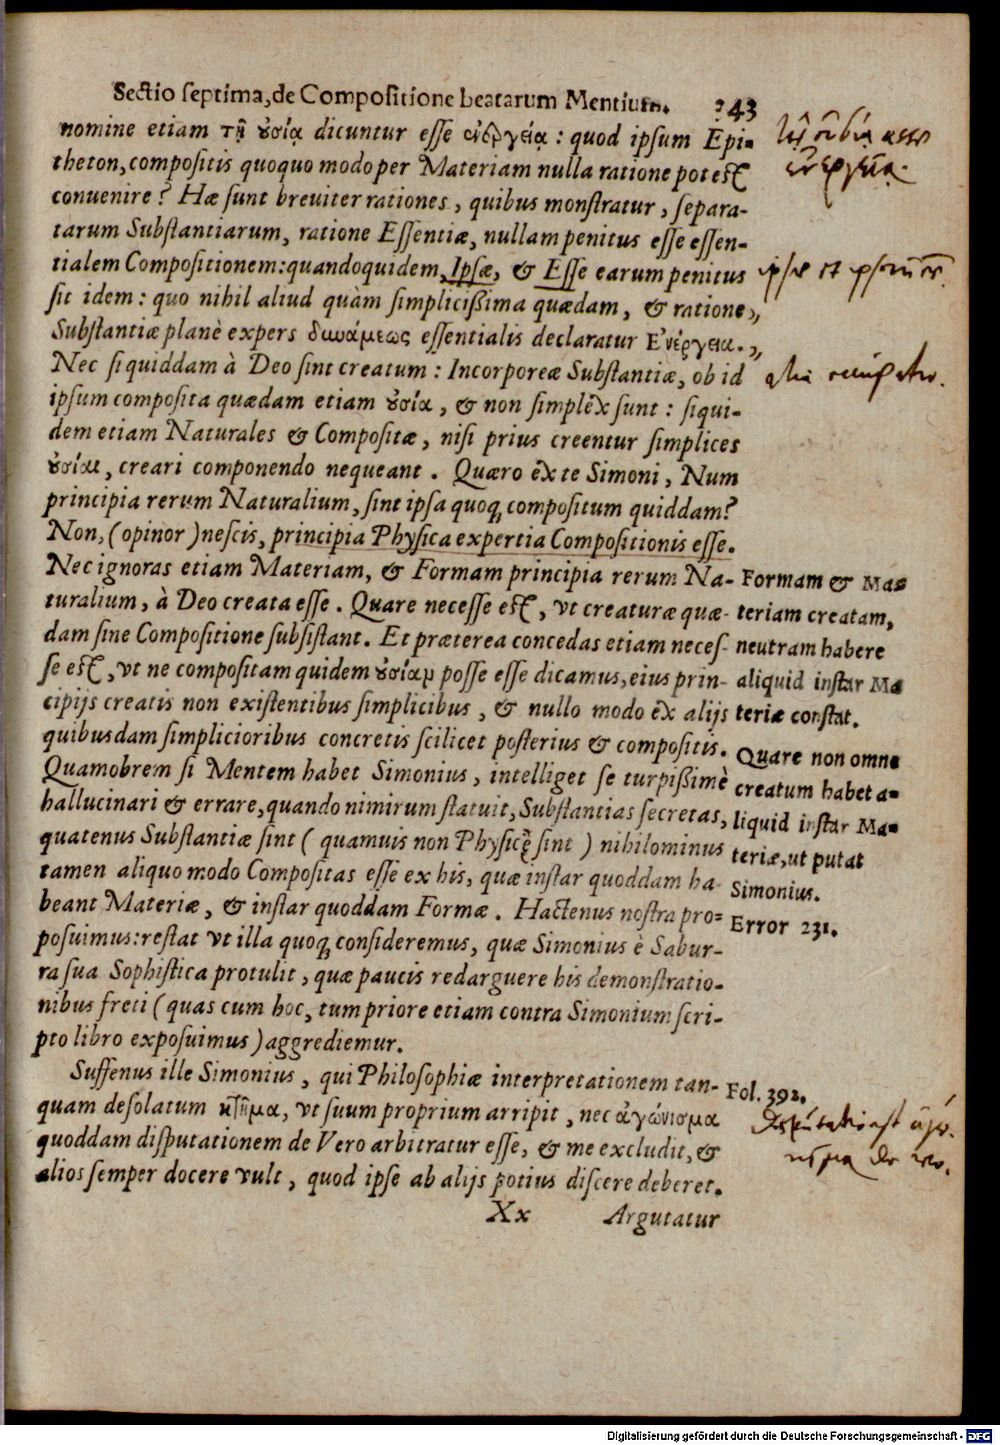 Sectio septima, de Compositione beatarum Mentium. 343
nomine etiam τῇ ȣ̓σίᾳ dicuntur esse ἐνεργείᾳ: quod ipsum Epi-
theton, compositis quoquo modo per Materiam nulla ratione potest
conuenire? Hæ sunt breuiter rationes, quibus monstratur, separa-
tarum Substantiarum, ratione Essentiæ, nullam penitus esse essen-
tialem Compositionem: quandoquidem, Ipsæ, & Esse earum penitus
sit idem: quo nihil aliud quàm simplicißima quædam, & ratione
Substantiæ planè expers δυνάμεως essentialis declaratur Ἐνέργεια.
Nec si quiddam à Deo sint creatum: Incorporeæ Substantiæ, ob id
ipsum composita quædam etiam ȣ̓σία, & non simplex sunt: siqui-
dem etiam Naturales & Compositæ, nisi prius creentur simplices
ȣ̓σίαι, creari componendo nequeant. Quæro ex te Simoni, Num
principia rerum Naturalium, sint ipsa quoq; compositum quiddam?
Non, (opinor) nescis, principia Physica expertia Compositionis esse.
Nec ignoras etiam Materiam, & Formam principia rerum Na-
turalium, à Deo creata esse. Quare necesse est, vt creaturæ quæ-
dam sine Compositione subsistant. Et præterea concedas etiam neces-
se est, vt ne compositam quidem ȣ̓σίαμ posse esse dicamus, eius prin-
cipijs creatis non existentibus simplicibus, & nullo modo ex alijs
quibusdam simplicioribus concretis scilicet posterius & compositis.
Quamobrem si Mentem habet Simonius, intelliget se turpißimè
hallucinari & errare, quando nimirum statuit, Substantias secretas,
quatenus Substantiæ sint (quamuis non Physicę sint) nihilominus
tamen aliquo modo Compositas esse ex his, quæ instar quoddam ha-
beant Materiæ, & instar quoddam Formæ. Hactenus nostra pro-
posuimus: restat vt illa quoq; consideremus, quæ Simonius è Sabur-
ra sua Sophistica protulit, quæ paucis redarguere his demonstratio-
nibus freti (quas cum hoc, tum priore etiam contra Simonium scri-
pto libro exposuimus) aggrediemur.
Suffenus ille Simonius, qui Philosophiæ interpretationem tan-
quam desolatum κτῆμα, vt suum proprium arripit, nec ἀγώνισμα
quoddam disputationem de Vero arbitratur esse, & me excludit, &
alios semper docere vult, quod ipse ab alijs potius discere deberet.
Xx Argutatur
ipsæ et ipsarum esse.
alia
Formam & Ma-
teriam creatam,
neutram habere
aliquid instar Ma
teriæ constat.
Quare non omne
creatum habet a-
liquid instar Ma-
teriæ, ut putat
Simonius.
Error 231.
Fol. 392.
Disputatio est ἀγώ-
νισμα de vero.
Digitalisierung gefördert durch die Deutsche Forschungsgemeinschaft - DFG